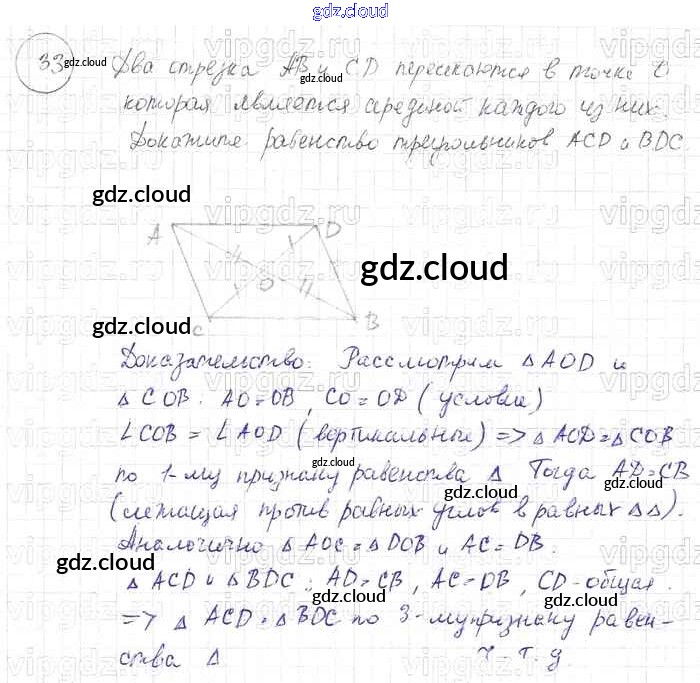 gdz.cloud
33 gdz.cloud Два отрезка AB и CD пересекаются в точке O
gdz.cloud
которая является срединой каждого из них.
Докажите равенство треугольников ACD и BDC
vipgdz.ru
gdz.cloud
A D
gdz.cloud
O
gdz.cloud
C B
Доказательство: Рассмотрим △ AOD и
△ COB. AO=OB, CO=OD (условие)
gdz.cloud
∠COB = ∠AOD (вертикальные) => △ AOD=△COB
gdz.cloud
по 1-му признаку равенства △ Тогда AD=CB
gdz.cloud gdz.cloud
(лежащая против равных углов в равных △△).
Аналогично △ AOC=△DOB и AC=DB.
gdz.cloud gdz.cloud
△ ACD и △BDC: AD=CB, AC=DB, CD-общая.
gdz.cloud gdz.cloud
=> △ ACD=△BDC по 3-му признаку равен-
ства △ ч.т.д.